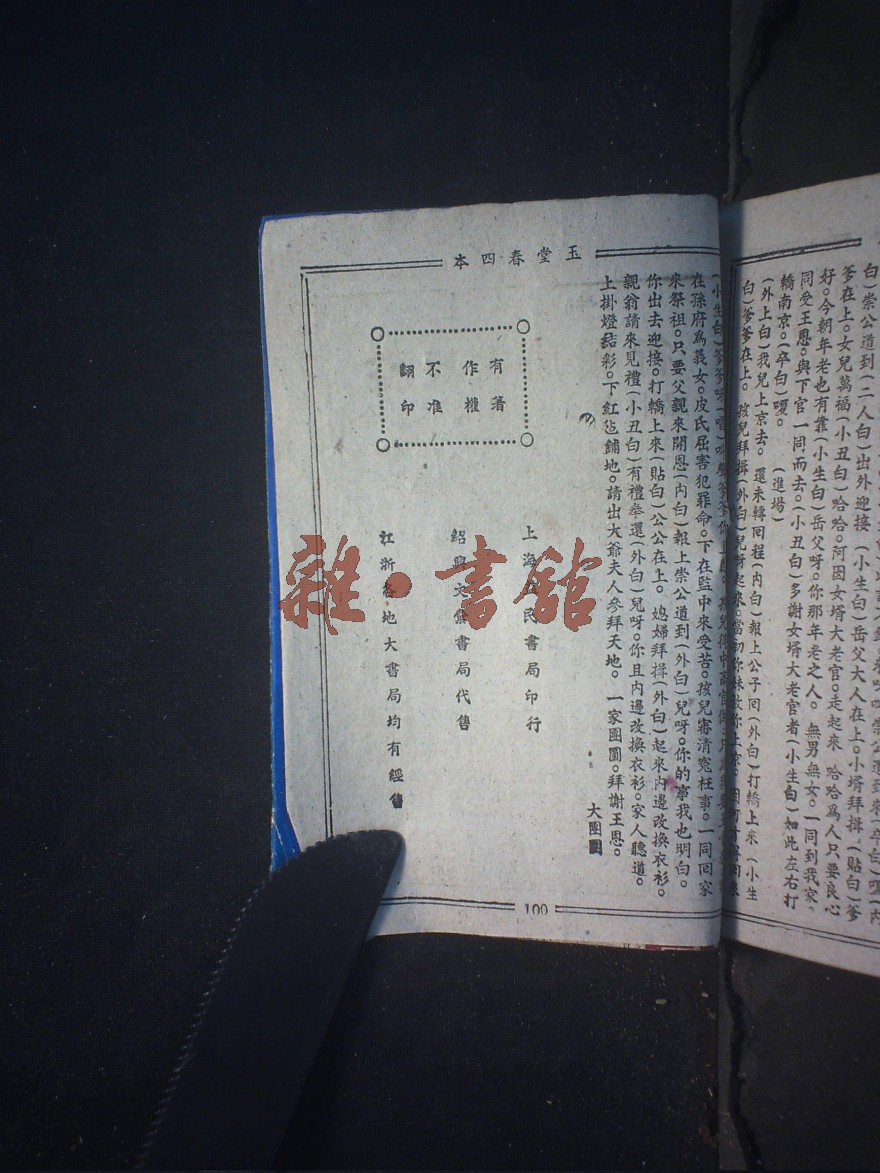 白)崇公道到(二人白)出外迎接 (小生白)岳父大人在上。小壻拜揖 (貼白)爹
爹在上。女兒萬福(小丑白)哈哈。阿囡女壻大老官。走起來 哈哈爲人只要良心
好。今朝年老也有靠(小生白)岳父呀。你那年老之人。無男無女。一同到我家。
同受王恩。與下官一同而去。(小丑白)多謝女壻大老官者(小生白)如此左右打
轎南京。(卒白)嗄。 (進場)
(外上白)我兒上京去。還未轉回程(內白)報上公子回(外白)打轎上來 (小生
白)爹爹在上。孩兒拜揖(外白)兒呀起來。當初你妹放你上京。
玉堂春四本
(小生白)爹爹呀
在孫府爲義女。皮氏屈害犯罪命。下在監中來受苦。孩兒審清寃枉事。一同回家
來祭祖。只要父親來開恩(內白)報上崇公道到(外白)兒呀。你的事我也明白。
你出去迎接。打轎上來(貼白)公公在上。媳婦拜揖(外白)起來內邊改換衣衫。
親翁請來見禮(小丑白)有禮奉還(外白)兒呀。你且內邊改換衣衫。家人聽道。
上掛燈結彩。下紅毡鋪地。請出大爺夫人參拜天地。一家團圓。拜謝王恩。
大團圓
有著
作權
不准
翻印
上海 民書局印行
紹興文 書局代售
江浙各地大書局均有經售
100
雜·書館